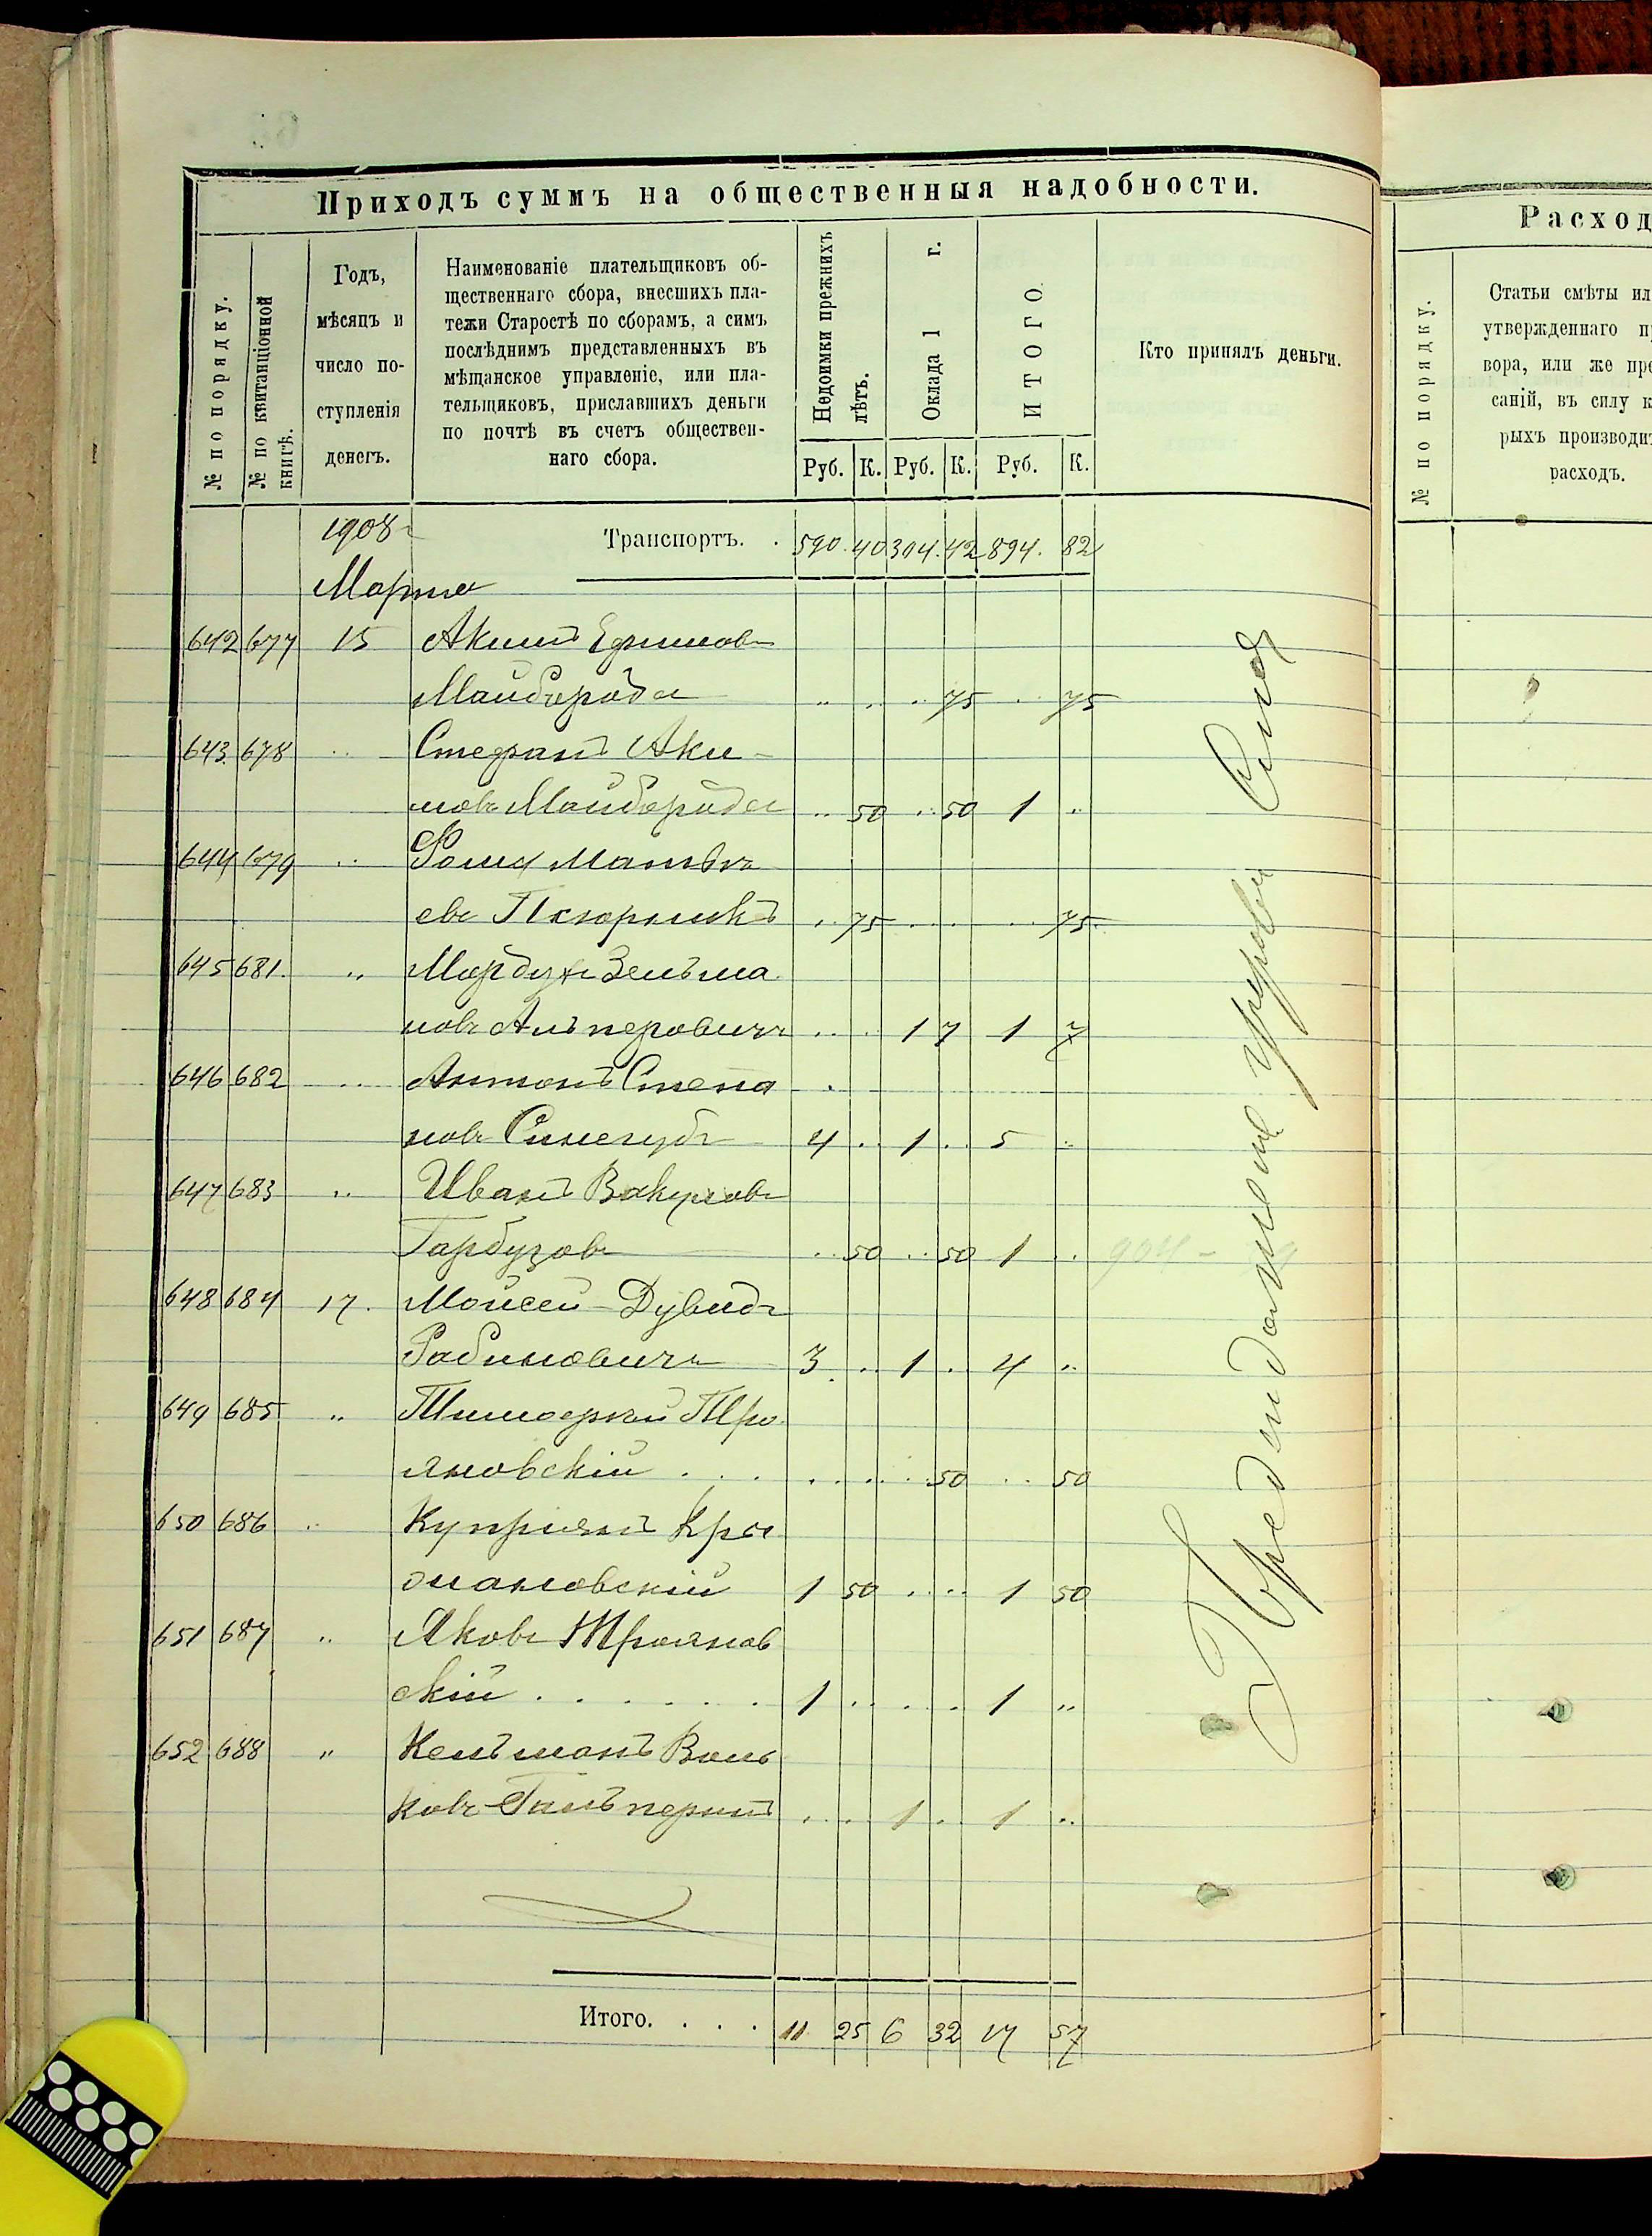 Приходъ суммъ на общественныя надобности.
№ по порядку.
№ по квитанціонной книгѣ.
Годъ,
мѣсяцъ и
число по-
ступленія
денегъ.
Наименованіе плательщиковъ об-
щественнаго сбора, внесшихъ пла-
тежи Старостѣ по сборамъ, а симъ
послѣднимъ представленныхъ въ
мѣщанское управленіе, или пла-
тельщиковъ, приславшихъ деньги
по почтѣ въ счетъ обществен-
наго сбора.
Недоимки прежнихъ лѣтъ.
Оклада 1 г.
ИТОГО
Кто принялъ деньги.
Руб. К. Руб. К. Руб. К.
1908 г
Транспортъ. . 590. 40 304. 42 894. 82
Марта
642 677 15 Акимъ Ефимовъ
Майборода " . . . . 75 . 75
643. 678 .. Стефанъ Аки-
мовъ Майборода .. 50 .. 50 1 ..
644 679 .. Фома Матвѣ
евъ .. 75 . . . . . 75.
645 681. .. Мордухъ Зельма
новъ Альперовичъ . . . . 1 7 1 7
646 682 .. Антонъ Степа
новъ Синегубъ 4 .. 1 .. 5 ..
647 683 .. Иванъ Вакуловъ
Гарбузовъ .. 50 .. 50 1 ..
648 684 17. Мойсей-Дувидъ
Рабиновичъ 3. .. 1 .. 4 ..
649 685 .. Тимофѣй Тро
яновскій . . . . . . . . 50 . . 50
650 686 .. Купріянъ Кры
жановскій 1 50 . . . . 1 50
651 687 .. Яковъ Трояновъ
скій . . . . . . 1 . . . . 1 ..
652 688 " Кельманъ Воль
ковъ Гальперинъ . . . . 1 . . 1 ..
Итого. . . . 11 25 6 32 17 57
Расход
№ по порядку.
Статьи смѣты ил
утвержденнаго п
вора, или же пре
саній, въ силу к
рыхъ производи
расходъ.